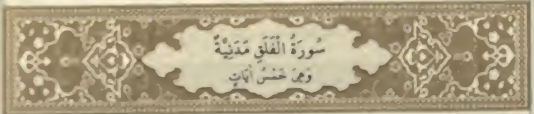 سُورَةُ الْفَلَقِ مَدَنِيَّةٌ
وَهِىَ خَمْسُ اٰيَاتٍ